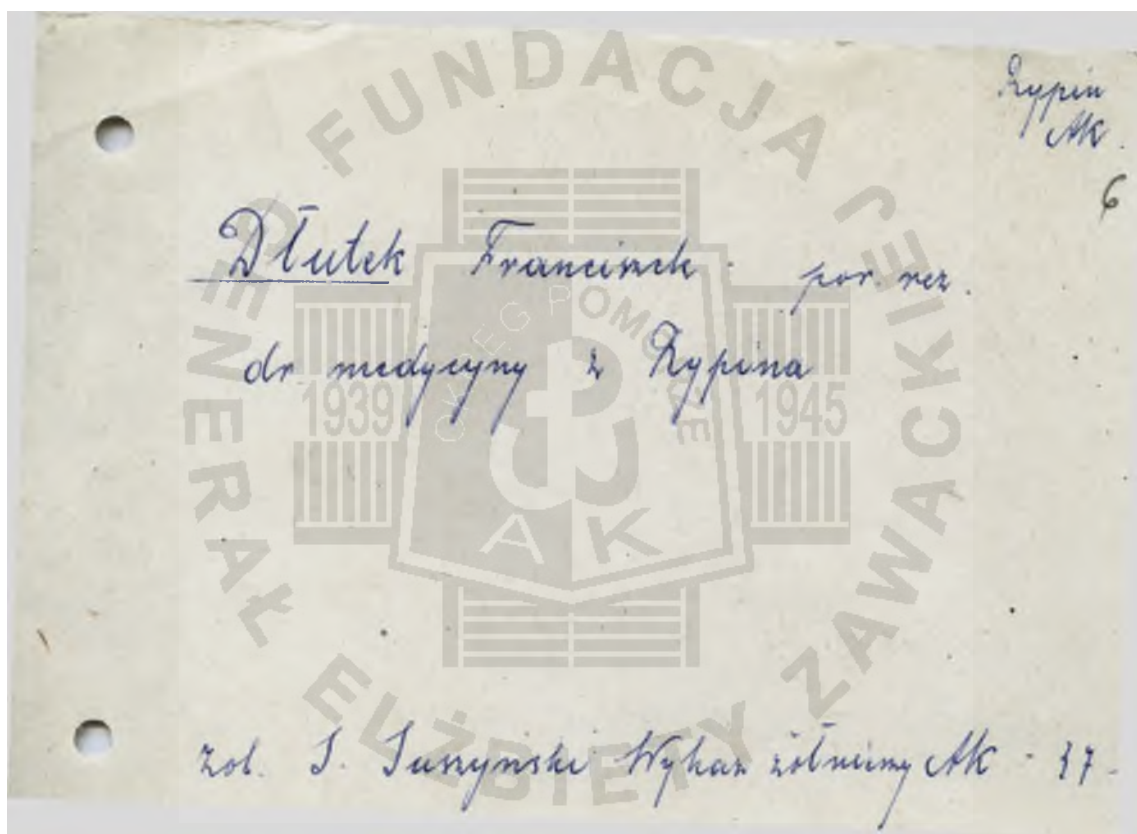 Rypin
AK.
6
Dłutek Franciszek por. rez.
dr medycyny z Rypina
zob. J. Suszyński Wykaz żołnierzy AK - 37.
FUNDACJA GENERAŁ ELŻBIETY ZAWACKIEJ
OKRĘG POMORZE
1939 1945
AK